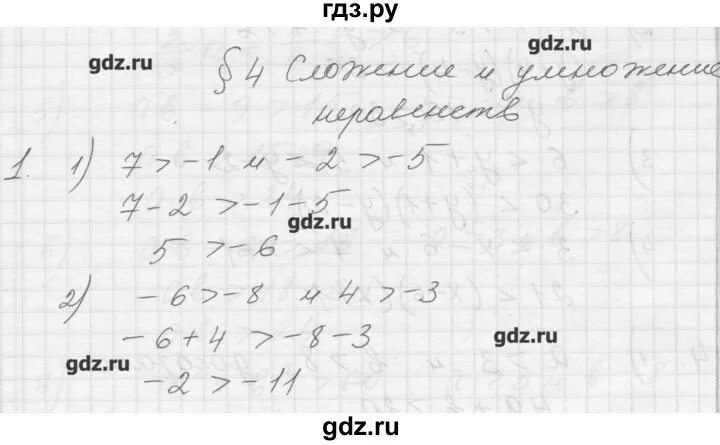 гдз.ру
gdz.ru
gdz.ru
§ 4 Сложение и умножение
неравенств
1. 1) 7 > -1 и -2 > -5
7 - 2 > -1 - 5
gdz.ru
5 > -6
2) -6 > -8 и 4 > -3
-6 + 4 > -8 - 3
gdz.ru
gdz.ru
-2 > -11
gdz.ru
gdz.ru